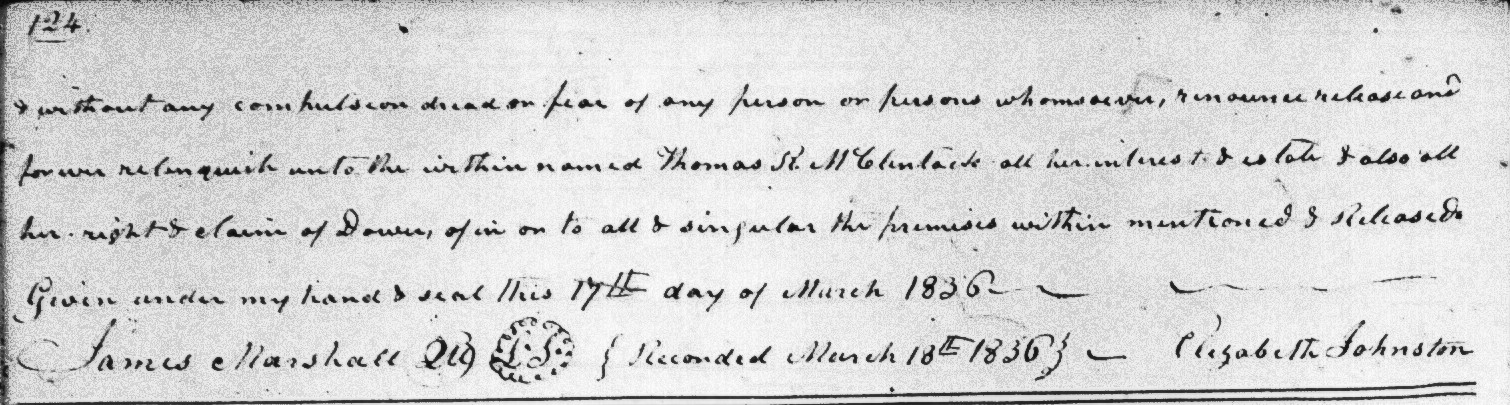 124.
& without any compulsion dread or fear of any person or persons whomsoever, renounce release and
forever relinquish unto the within named Thomas R. McClintock all her interest & estate & also all
her right & claim of Dower, of in or to all & singular the premises within mentioned & Released.
Given under my hand & seal this 17th day of March 1836
James Marshall QU L.S. { Recorded March 18th 1836 } Elizabeth Johnston